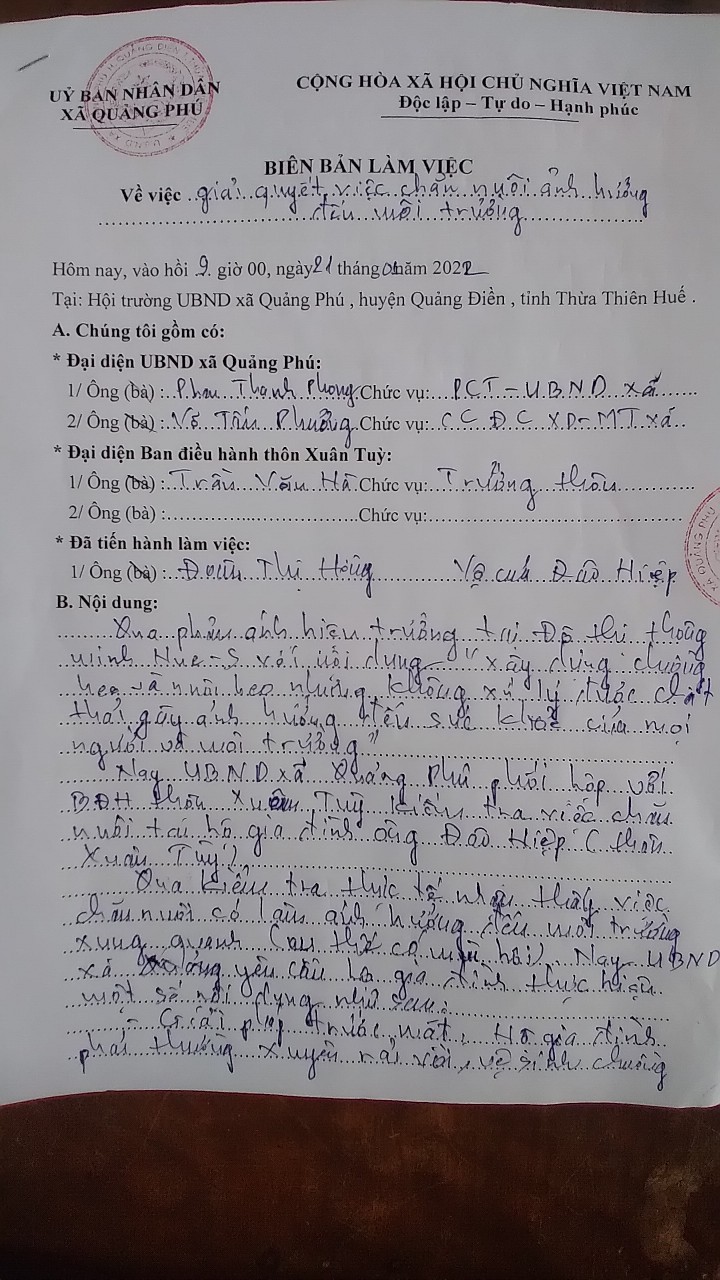 UỶ BAN NHÂN DÂN
XÃ QUẢNG PHÚ
CỘNG HÒA XÃ HỘI CHỦ NGHĨA VIỆT NAM
Độc lập – Tự do – Hạnh phúc
BIÊN BẢN LÀM VIỆC
Về việc giải quyết việc chăn nuôi ảnh hưởng
đến môi trường
Hôm nay, vào hồi 9 giờ 00, ngày 21 tháng năm 2022
Tại: Hội trường UBND xã Quảng Phú , huyện Quảng Điền , tỉnh Thừa Thiên Huế .
A. Chúng tôi gồm có:
* Đại diện UBND xã Quảng Phú:
1/ Ông (bà) : Phan Thanh Phong Chức vụ: PCT - UBND xã
2/ Ông (bà) : Võ Tấn Phường Chức vụ: CC ĐC XD - MT xã
* Đại diện Ban điều hành thôn Xuân Tuỳ:
1/ Ông (bà) : Trần Văn Hà Chức vụ: Trưởng thôn
2/ Ông (bà) : Chức vụ:
* Đã tiến hành làm việc:
1/ Ông (bà) : Đoàn Thị Hồng Vợ của Đào Hiệp
B. Nội dung:
Qua phản ánh hiện trường tại Đô thị thông
minh Hue-S với nội dung "xây dựng chuồng
heo và nuôi heo nhưng không xử lý được chất
thải gây ảnh hưởng đến sức khoẻ của mọi
người và môi trường"
Nay UBND xã Quảng Phú phối hợp với
BĐH thôn Xuân Tuỳ kiểm tra việc chăn
nuôi tại hộ gia đình ông Đào Hiệp (thôn
Xuân Tuỳ)
Qua kiểm tra thực tế nhận thấy việc
chăn nuôi có làm ảnh hưởng đến môi trường
xung quanh (cụ thể có mùi hôi). Nay UBND
xã yêu cầu hộ gia đình thực hiện
một số nội dung như sau:
- Giải pháp trước mắt, Hộ gia đình
phải thường xuyên rải vôi, vệ sinh chuồng